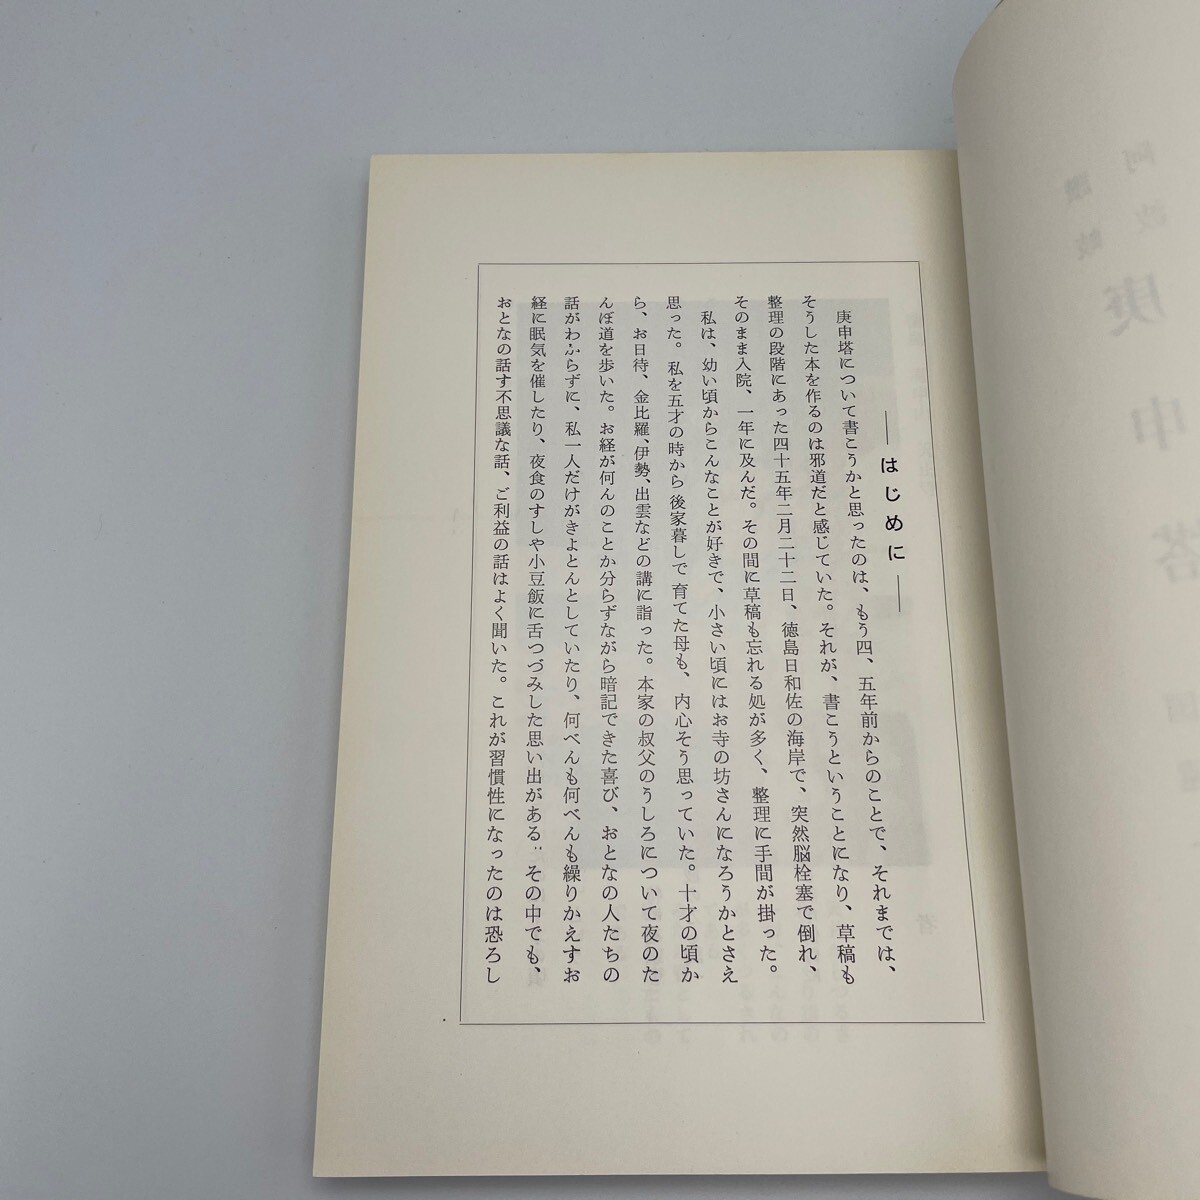 ―はじめに―
庚申塔について書こうかと思ったのは、もう四、五年前からのことで、それまでは、
そうした本を作るのは邪道だと感じていた。それが、書こうということになり、草稿も
整理の段階にあった四十五年二月二十二日、徳島日和佐の海岸で、突然脳栓塞で倒れ、
そのまま入院、一年に及んだ。その間に草稿も忘れる処が多く、整理に手間が掛った。
私は、幼い頃からこんなことが好きで、小さい頃にはお寺の坊さんになろうかとさえ
思った。私を五才の時から後家暮しで育てた母も、内心そう思っていた。十才の頃か
ら、お日待、金比羅、伊勢、出雲などの講に詣った。本家の叔父のうしろについて夜のた
んぼ道を歩いた。お経が何んのことか分らずながら暗記できた喜び、おとなの人たちの
話がわふらずに、私一人だけがきよとんとしていたり、何べんも何べんも繰りかえすお
経に眠気を催したり、夜食のすしや小豆飯に舌つづみした思い出がある‥その中でも、
おとなの話す不思議な話、ご利益の話はよく聞いた。これが習慣性になったのは恐ろし